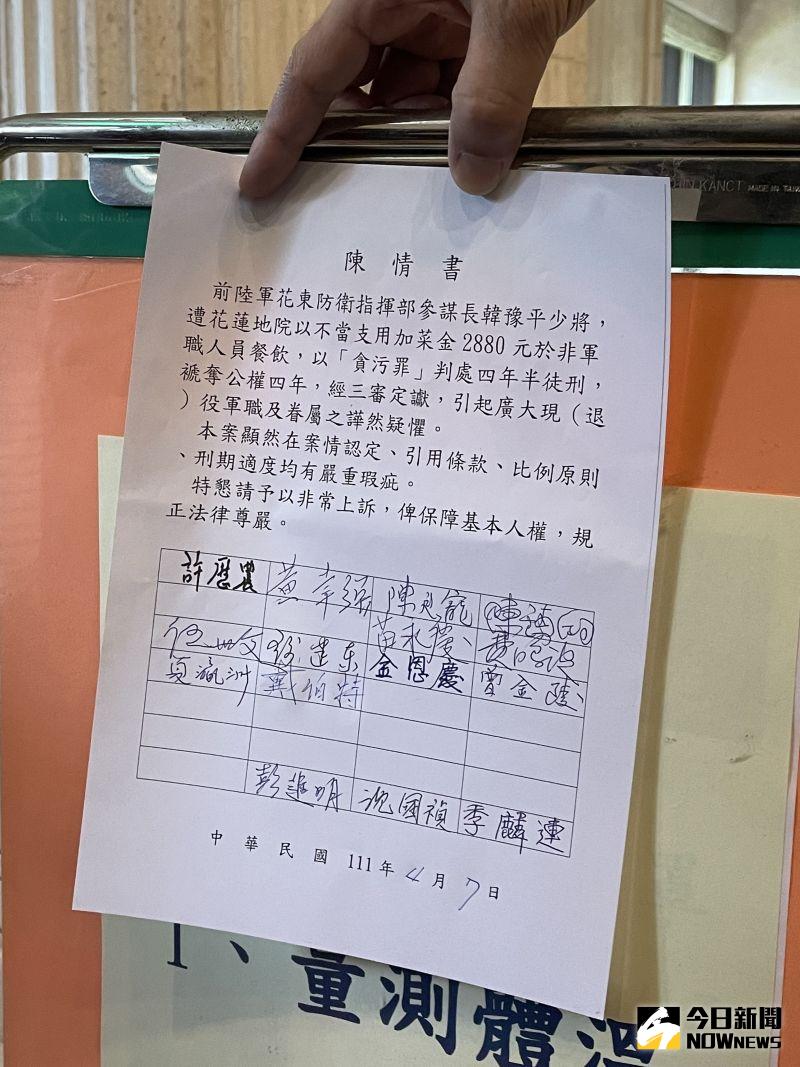 KANCT MADE IN TAIW
陳情書
前陸軍花東防衛指揮部參謀長韓豫平少將，
遭花蓮地院以不當支用加菜金2880元於非軍
職人員餐飲，以「貪污罪」判處四年半徒刑，
褫奪公權四年，經三審定讞，引起廣大現（退
）役軍職及眷屬之譁然疑懼。
本案顯然在案情認定、引用條款、比例原則
、刑期適度均有嚴重瑕疵。
特懇請予以非常上訴，俾保障基本人權，規
正法律尊嚴。
許歷農 黃幸強
苗永慶
戴伯特 金恩慶 費
彭進明 沈國禎 季麟連
中華民國 111年 4月 7日
1、量測體溫
今日新聞
NOWNEWS